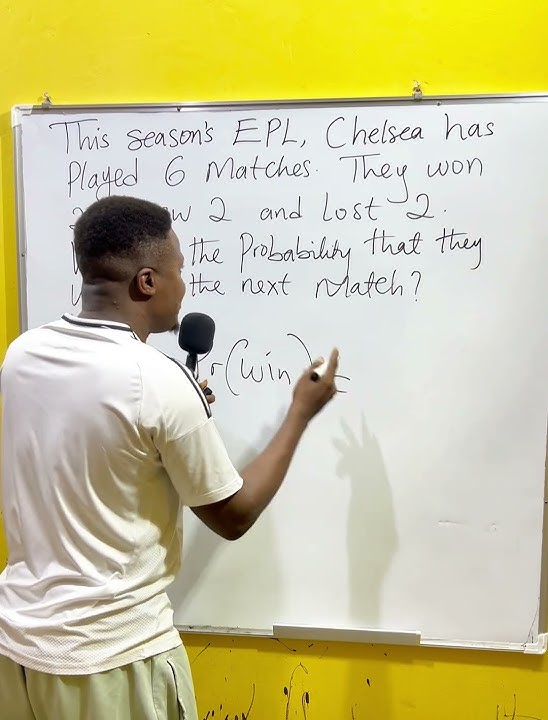 This season's EPL, Chelsea has
Played 6 Matches. They won
2 and Lost 2.
the Probability that they
the next Match?
(win) =